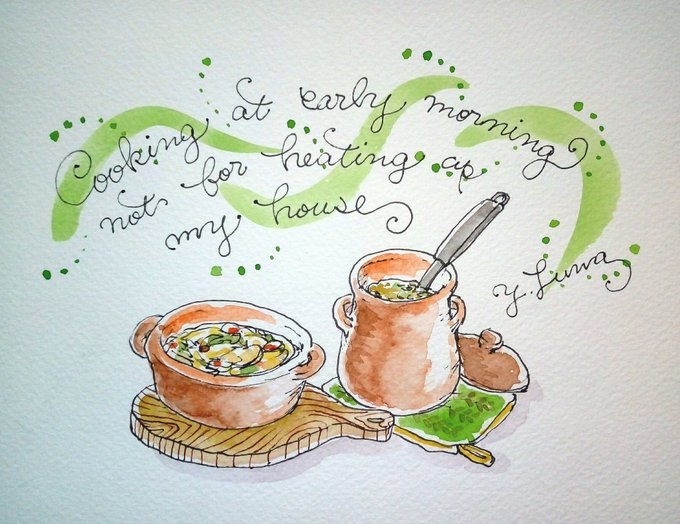 Cooking at early morning
not for heating up
my house
Y. Luwa